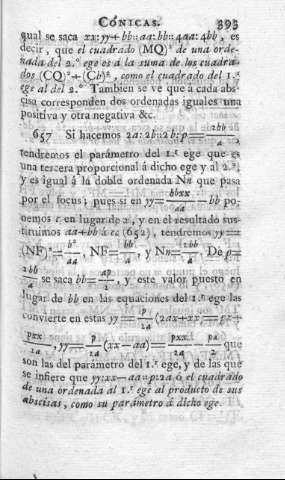 CÓNICAS. 393
qual se saca xx: yy+bb:: aa: bb:: 4aa: 4bb, es
decir, que el cuadrado (MQ)² de una orde-
nada del 2.º ege es á la suma de los cuadra-
dos (CQ)²+(Cb)², como el cuadrado del 1.r
ege al del 2.º Tambien se ve que á cada abs-
cisa corresponden dos ordenadas iguales una
positiva y otra negativa &c.
657 Si hacemos 2a: 2b:: 2b: p = 2bb/a,
tendremos el parámetro del 1.r ege que es
una tercera proporcional á dicho ege y al 2.º;
y es igual á la doble ordenada Nn que pasa
por el focus; pues si en yy = bbxx/aa - bb po-
nemos c en lugar de x, y en el resultado sus-
tituimos aa+bb á cc (652), tendremos yy =
(NF)² = b⁴/aa, NF = bb/a, y Nn = 2bb/a. De p =
2bb/a se saca bb = ap/2, y este valor puesto en
lugar de bb en las equaciones del 1.r ege las
convierte en estas yy = p/2a (2ax+xx) = px+
pxx/2a, yy = p/2a (xx-aa) = pxx/2a - pa/2 que
son las del parámetro del 1.r ege, y de las que
se infiere que yy: xx-aa:: p: 2a ó el cuadrado
de una ordenada al 1.r ege al producto de sus
abscisas, como su parámetro á dicho ege.